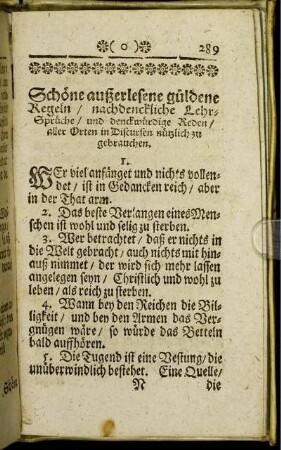 ❊( o )❊ 289
Schöne außerlesene güldene
Regeln / nachdenckliche Lehr-
Sprüche / und denckwürdige Reden /
aller Orten in Discursen nützlich zu
gebrauchen.
1.
WEr viel anfänget und nichts vollen-
det / ist in Gedancken reich / aber
in der That arm.
2. Das beste Verlangen eines Men-
schen ist wohl und selig zu sterben.
3. Wer betrachtet / daß er nichts in
die Welt gebracht / auch nichts mit hin-
auß nimmet / der wird sich mehr lassen
angelegen seyn / Christlich und wohl zu
leben / als reich zu sterben.
4. Wann bey den Reichen die Bil-
ligkeit / und bey den Armen das Ver-
gnügen wäre / so würde das Betteln
bald auffhören.
5. Die Tugend ist eine Vestung / die
unüberwindlich bestehet. Eine Quelle /
N die